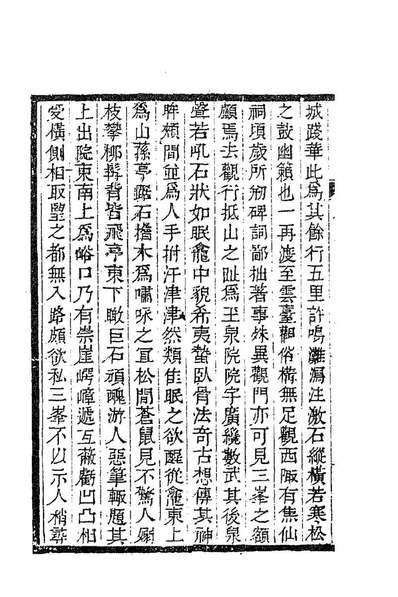 城踐華此爲其餘行五里許鳴灘瀉注激石縱橫若寒松
之鼓幽籟也一再渡至雲臺觀俗構無足觀西陬有焦仙
祠頃歲所刱碑詞鄙拙著事殊異觀門亦可見三峯之額
顱焉去觀行抵山之趾爲玉泉院院宇廣纔數武其後泉
聲若吼石狀如眠龕中貌希夷蟄臥骨法奇古想傳其神
眸頰間並爲人手拊汗津津然類佳眠之欲醒從龕東上
爲山蓀亭鋸石擔木爲嘯咏之宜松間蒼鼠見不驚人厨
枝攀梛髯背皆飛亭東下瞰巨石頑醜游人惡筆輙題其
上出院東南上爲峪口乃有崇崖崿嶂遞互蔽虧凹凸相
受橫側相取望之都無入路頗欲私三峯不以示人稍尋